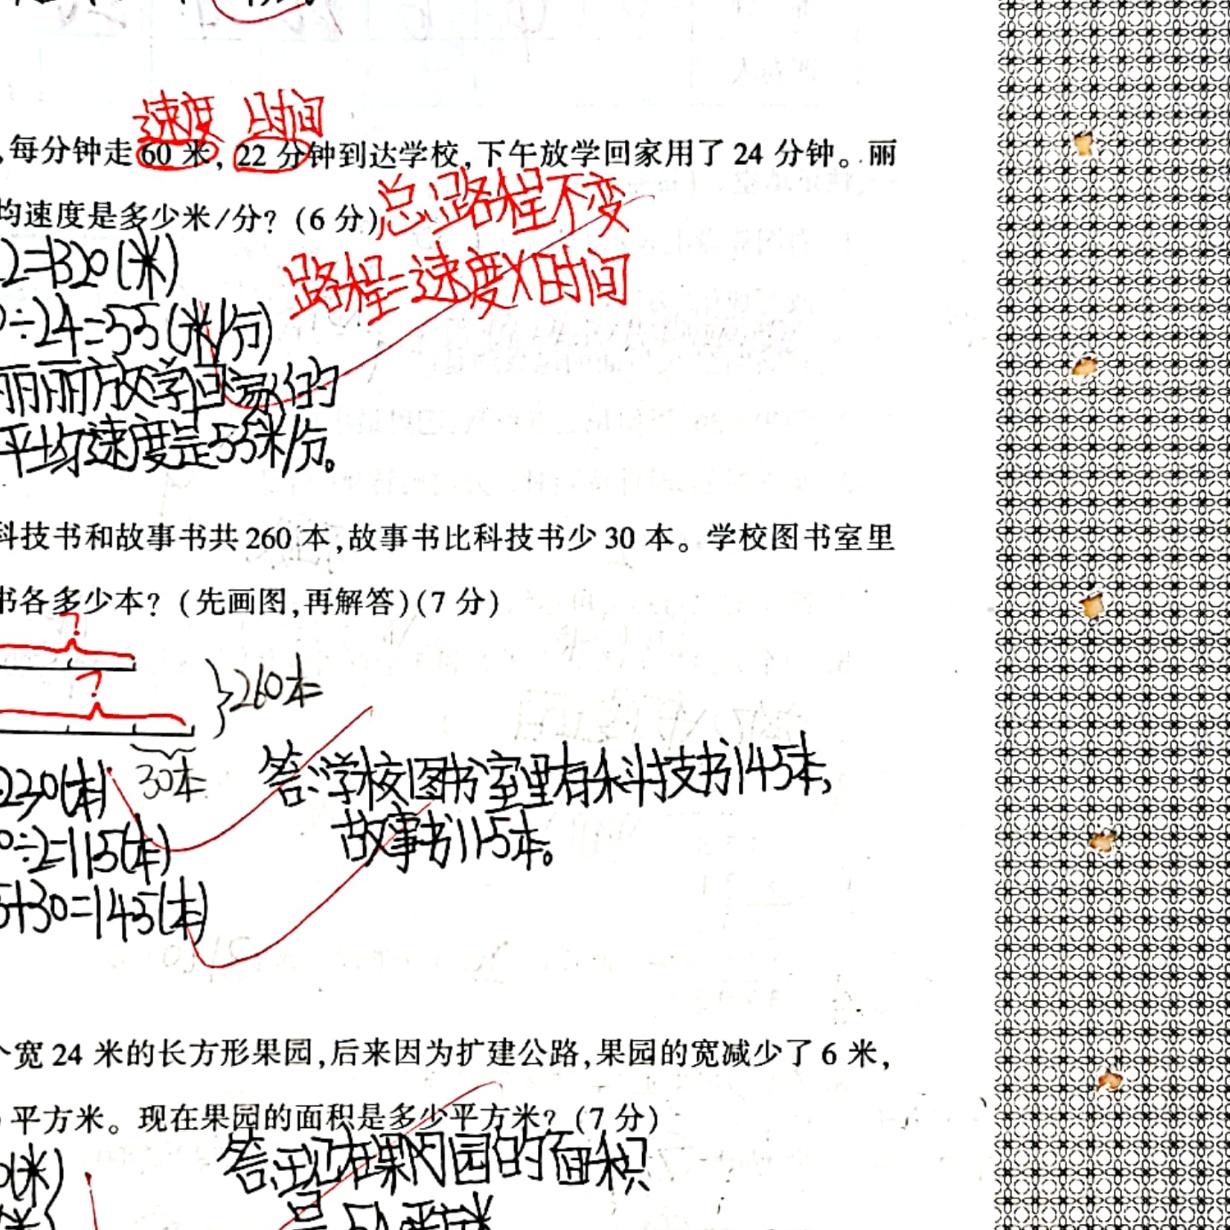 速度 时间
,每分钟走60米,22分钟到达学校,下午放学回家用了24分钟。丽
均速度是多少米/分?(6分)
总路程不变
2=1320(米)
路程=速度×时间
÷24=55(米/分)
丽丽放学回家的
平均速度是55米/分。
科技书和故事书共260本,故事书比科技书少30本。学校图书室里
书各多少本?(先画图,再解答)(7分)
?
?
}260本
30本
230(本)
答:学校图书室里有科技书145本,
0÷2=115(本)
故事书115本。
5+30=145(本)
个宽24米的长方形果园,后来因为扩建公路,果园的宽减少了6米,
平方米。现在果园的面积是多少平方米?(7分)
0(米)
答:现在果园的面积
是